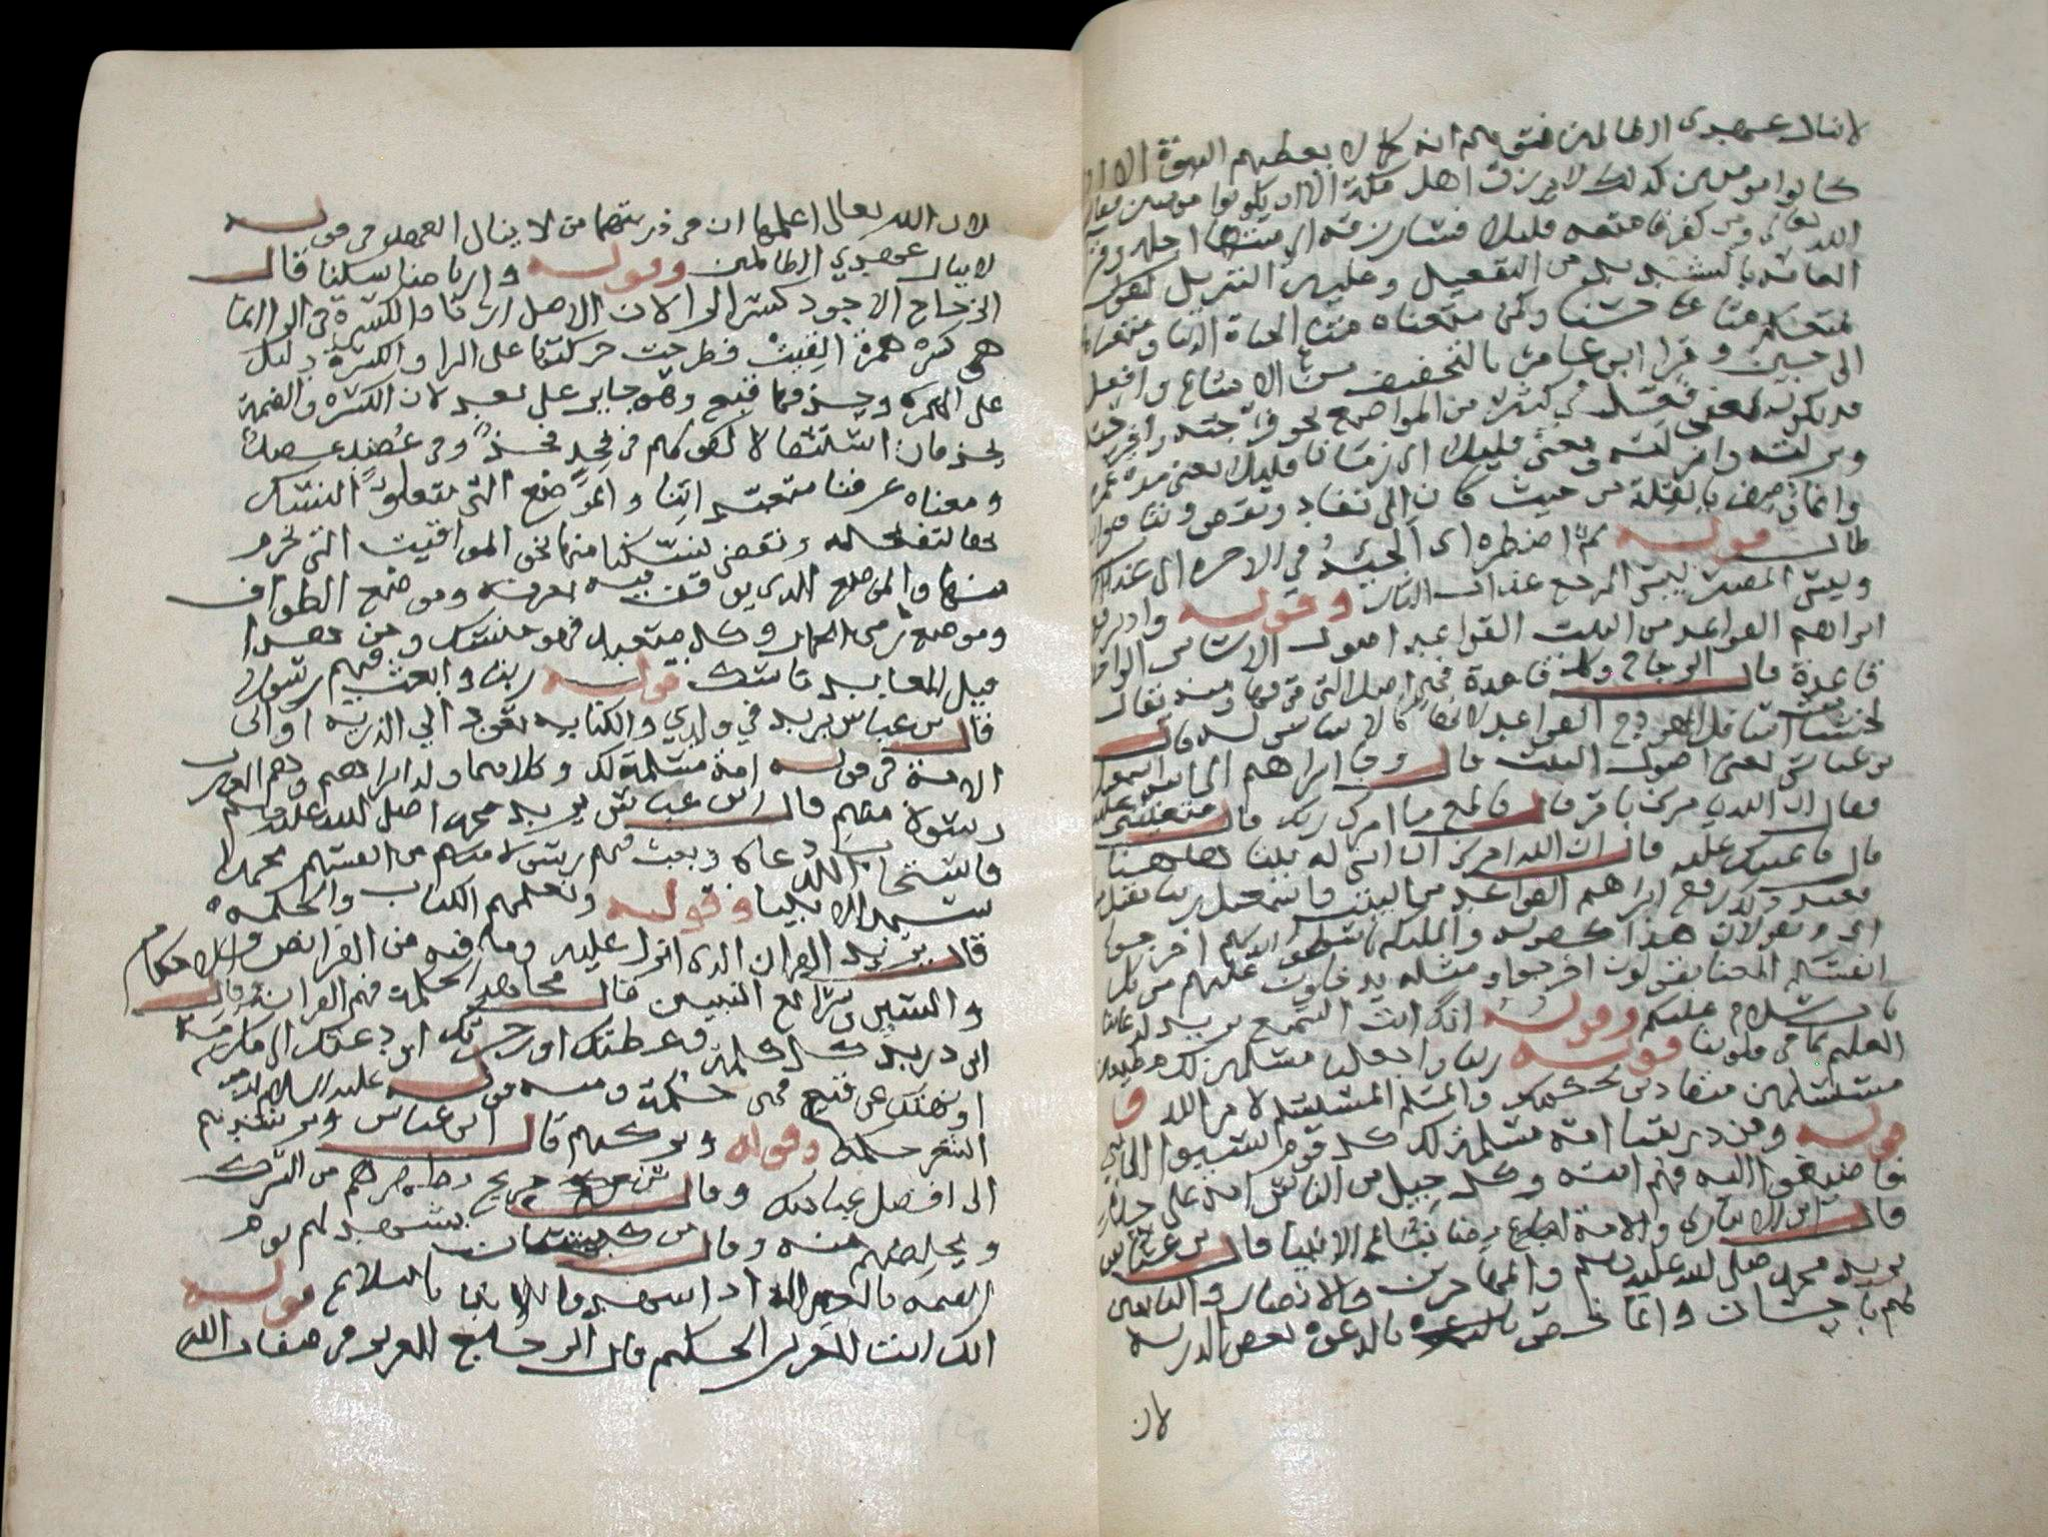 لا ينال عهدي الظالمين فتوهم انه كما لا يعطيهم النبوة الا ان
كانوا مومنين كذلك لا يرزق اهل مكة الا ان يكونوا مومنين فقال
الله تعالى ومن كفر فامتعه قليلا فسارزقه الى منتهى اجله وقرا
العامة بالتشديد من التفعيل وعليه التنزيل كقوله
يمتعكم متاعا حسنا وكمن متعناه متاع الحياة الدنيا ومتعناهم
الى حين وقرا ابن عامر بالتخفيف من الامتاع وافعل
قد يكون بمعنى فعل في كثير من المواضع نحو فرحته وافرحته
ونزلته وانزلته ومعنى قليلا اى زمانا قليلا يعنى مدة عمره
وانما وصف بالقلة من حيث كان الى نفاد ونقص وفنا وان
طال قوله ثم اضطره اى الجيه في الاخرة الى عذاب
وبيس المصير بيس المرجع عذاب النار وقوله واذ يرفع
ابراهيم القواعد من البيت القواعد اصول الاساس الواحدة
قاعدة قال الزجاج وكل قاعدة فهي اصل التي فوقها ومنه يقال
لخشبات اسافل الهودج القواعد لانها كالاساس له قال
بن عباس يعنى اصول البيت قال وجا ابراهيم الى اسمعيل
فقال ان الله يامرني بامر قال فاصنع ما امرك ربك قال فتعينني
قال فاعينك عليه قال ان الله امرني ان ابني له بيتا هاهنا
فعند ذلك رفع ابراهيم القواعد من البيت واسمعيل ربنا تقبل
اى ويقولان هذا كقوله والملايكة باسطوا ايديهم اخرجوا
انفسكم المعنا يقولون اخرجوا ومثله يدخلون عليهم من كل
باب سلام عليكم وقوله انك انت السميع يريد لدعاينا
العليم بما في قلوبنا قوله ربنا واجعلنا مسلمين لك مطيعين
مستسلمين منقادين لحكمك والمسلم المستسلم لامر الله و
قوله ومن ذريتنا امة مسلمة لك كل قوم انتسبوا الى نبي
فاضيفوا اليه فهم امته وكل جيل من الناس امة على حدة
قال ابن الانباري والامة اتباع الانبيا قال بن عباس
يريد محمد صلى الله عليه وسلم والمهاجرين والانصار والتابعين
لهم باحسان وانما خص بالدعوة بعض الذرية
لان
لان الله تعالى اعلمهما ان في ذريتهما من لا ينال العهد في قوله
لا ينال عهدي الظالمين وقوله وارنا مناسكنا قال
الزجاج الاجود كسر الرا لان الاصل ارئنا والكسرة في الرا انما
هي كسرة همزة القيت فطرحت حركتها على الرا والكسرة دليل
على الهمزة وحذفها قبيح وهو جايز على بعد لان الكسرة والضمة
يحذفان استثقالا كقولهم في فخِذ فخْذ وفي عضُد عضْد
ومعناه عرفنا متعبداتنا والمواضع التي يتعلق النسك
بها لنفعله ونقضي نسكنا فيها نحو المواقيت التي نحرم
منها والموضع الذي يوقف فيه بعرفة وموضع الطواف
وموضع رمي الجمار وكل متعبد فهو منسك ومن هذا
قيل للعابد ناسك قوله ربنا وابعث فيهم رسولا
قال بن عباس يريد في ولدي والكناية تعود الى الذرية او الى
الامة في قوله امة مسلمة لك وكلاهما ولد ابراهيم وهم العرب
رسولا منهم قال ابن عباس يريد محمدا صلى الله عليه وسلم
فاستجاب الله دعاه وبعث فيهم رسولا منهم من انفسهم محمدا
سيد الانبيا وقوله ويعلمهم الكتاب والحكمة
قال يريد القران الذى انزل عليه وما فيه من الفرايض والاحكام
والسنن وشرايع النبيين قال مجاهد الحكمة فهم القران وقال
ابن دريد كل كلمة وعظتك او زجرتك او دعتك الى مكرمة
او نهتك عن قبيح فهي حكمة ومنه قوله عليه السلام ان من
الشعر حكمة وقوله ويزكيهم قال ابن عباس ويرشدهم
الى افضل عبادتك وقال بن جريج يطهرهم من الشرك
ويخلصهم منه وقال بن كيسان يشهد لهم يوم
القيمة بالعدالة اذا شهدوا للانبيا بالبلاغ قوله
انك انت العزيز الحكيم قال الزجاج العزيز في صفات الله